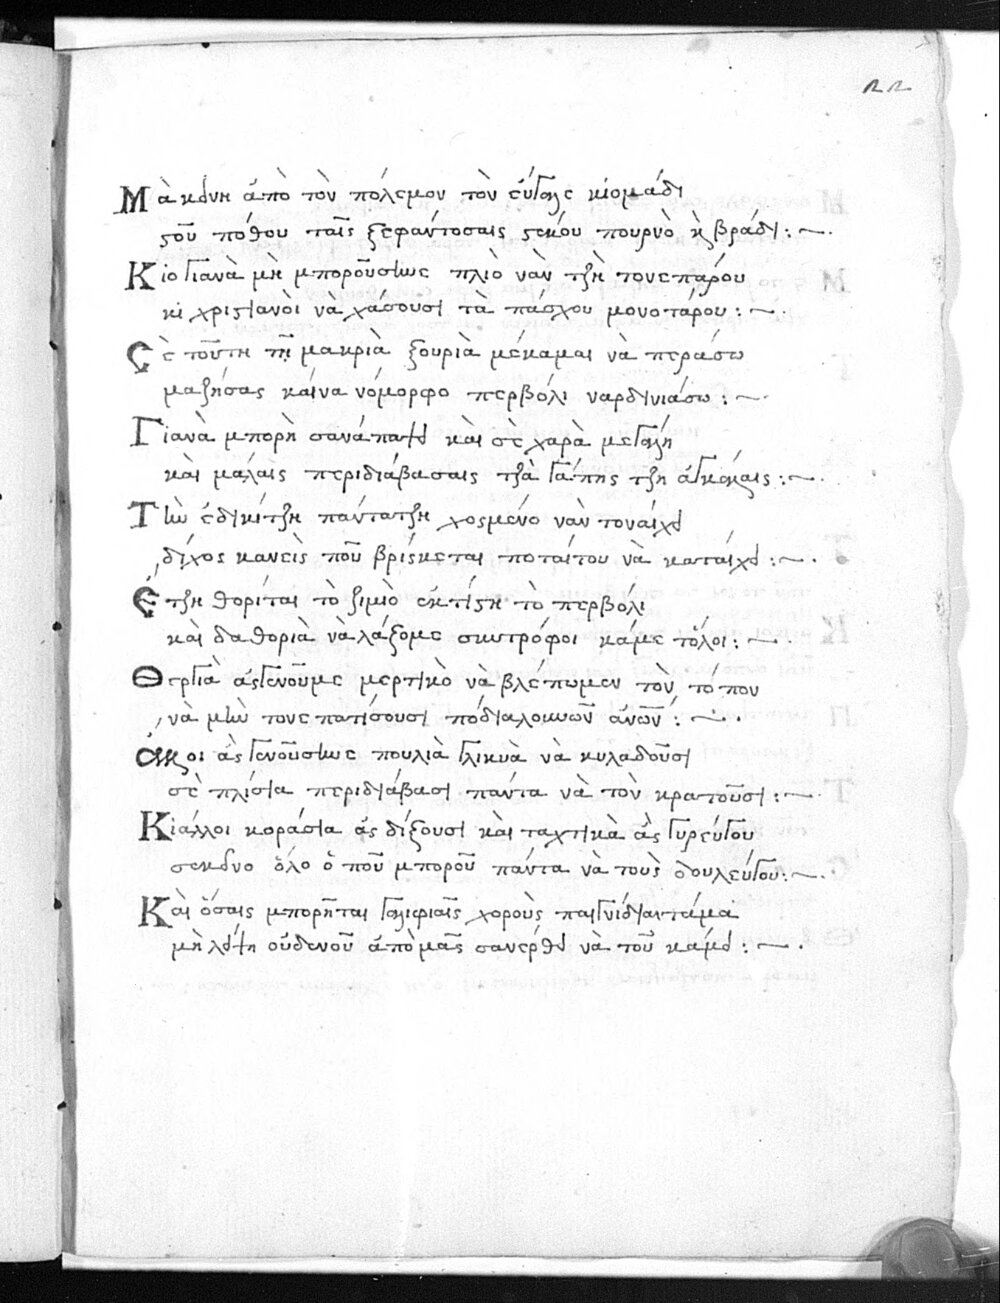 22
Μὰ κείνη ἀπὸ τὸν πόλεμον τὸν εὔγαλε κιομάδι
ςοῦ πόθου ταῖς ξεφάντοσαις ςέκου πουρνὸ κὲ βράδι:~.
Κίο γιανὰ μὴ μποροῦσίωε πλιὸ νὰν τζὴ τονεπάρου
κὶ χριςιανὸι νὰ χάσουσι τὰ πάσχου μονοτάρου:~.
Σὲ τοῦτη τῆ μακριὰ ξουριὰ μέκαμαι νὰ περάσω
μαζήσας κάινα νόμορφο περβόλι ναρδινιάσω:~.
Γιανὰ μπορὴ σανάπαψει κὰι σὲ χαρὰ μεγάλη
κὰι μαλαὶς περιδιάβασαις τζὰ γάπης τζη ἀγκάλαις:~.
Τίὼ ἐδικίτζη πάντατζη χοςμένο νὰν τονάιχει
δίχος κανεὶς ποῦ βρίςκεται ποταίτου νὰ καταίχει:~.
Ἔτζη θορίται τὸ ζιμιὸ ἐκτίςη τὸ περβόλι
κὰι δα θοριὰ νὰ λάξομε σκυτρόφοι κάμε τόλοι:~.
Θεργιὰ ἀςγενοῦμε μερτικὸ νὰ βλέπωμεν τὸν τόπον
νὰ μίὼ τονε πατίσουσι πόδιαλομιῶν ἀνων:~.
Ἄκοι ἀς γενοῦσίωε πουλιὰ γλικυὰ νὰ κυλαδοῦσι
σὲ πλίσια περιδιάβασι πάντα νὰ τὸν κρατοῦσι:~.
Κιάλλοι κοράσια ἀς δίξουσι κὰι ταχτικὰ ἀς γυρεύγου
σεκείνο ὅλο ὁ ποῦ μποροῦ πάντα νὰ τοὺς δουλεύγου:~.
Κὰι ὅσαις μπορῆται ζαλιφιαῖς χοροὺς παιγνίδιαντάμα
μὴ λείψη οὐδενοῦ ἀπὸ μᾶς σανέρθει νὰ τοῦ κάμει:~.